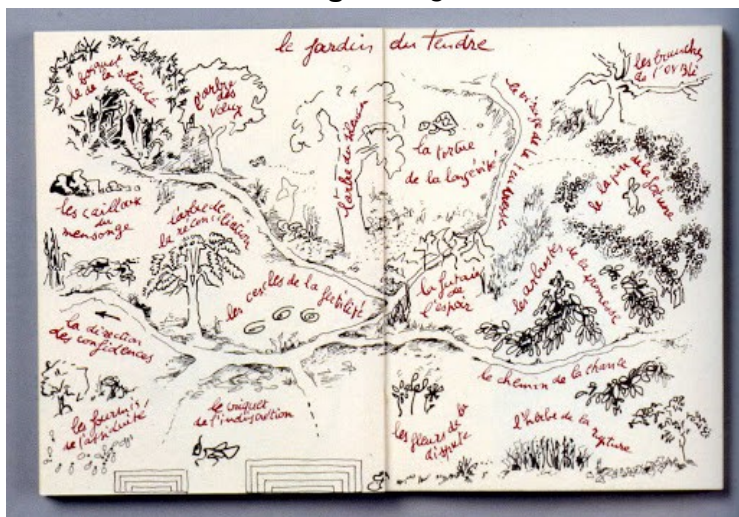 le jardin du Tendre
le bosquet
de la solitude
l'arbre
des
vœux
les branches
de l'oubli
l'arbre du
la tortue
de la longévité
le virage de la
le lapin de la fortune
les cailloux
du
mensonge
l'arbre de
la réconciliation
les cercles de la fertilité
la futaie
de
l'espoir
les arbustes de la promesse
la direction
des confidences
le chemin de la chance
les fourmis
de l'assiduité
le criquet
de l'indiscrétion
les fleurs de la
dispute
l'herbe de la rupture